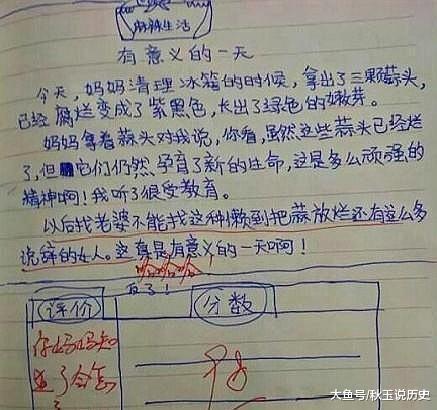 麻辣生活
有意义的一天
今天,妈妈清理冰箱的时候,拿出了三颗蒜头,
已经腐烂变成了紫黑色,长出了绿色的嫩芽。
妈妈拿着蒜头对我说,你看,虽然这些蒜头已经烂
了,但它们仍然孕育了新的生命,这是多么顽强的
精神啊!我听了很受教育。
以后找老婆不能找这种懒到把蒜放烂还有这么多
说辞的女人。这真是有意义的一天啊!
哈哈哈
评价
分数
你妈妈知
道了会怎
大鱼号/秋玉说历史